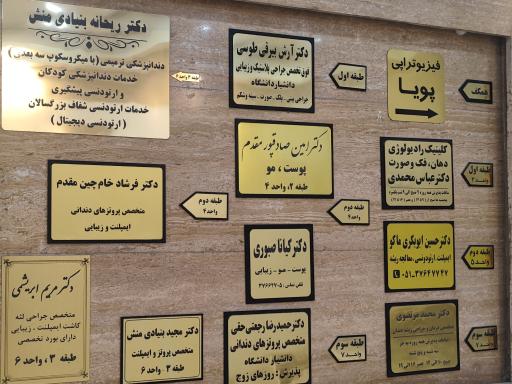 همکف
فیزیوتراپی
پویا
طبقه اول
دکتر آرش بیرقی طوسی
فوق تخصص جراحی پلاستیک و زیبایی
دانشیار دانشگاه
جراحی بینی - پلک - صورت - سینه و شکم
دکتر ریحانه بنیادی منش
دندانپزشکی ترمیمی (با میکروسکوپ سه بعدی)
خدمات دندانپزشکی کودکان
و ارتودنسی پیشگیری
خدمات ارتودنسی شفاف بزرگسالان
(ارتودنسی دیجیتال)
طبقه ۳ واحد ۶
طبقه اول
واحد ۲
کلینیک رادیولوژی
دهان، فک و صورت
دکتر عباس محمدی
دکتر رامین صادقپور مقدم
پوست ، مو
طبقه ۲، واحد ۴
طبقه دوم
واحد ۴
طبقه دوم
واحد ۴
دکتر فرشاد خام چین مقدم
متخصص پروتزهای دندانی
ایمپلنت و زیبایی
طبقه دوم
واحد ۵
دکتر حسین ابونگری ماکو
ایمپلنت ، ارتودونسی ، معالجه ریشه
۰۵۱-۳۷۶۴۷۷۴۷
دکتر کیانا صبوری
پوست - مو - زیبایی
تلفن تماس : ۳۷۶۶۲۷۰۵
دکتر مریم ابریشمی
متخصص جراحی لثه
کاشت ایمپلنت ، زیبایی
دارای بورد تخصصی
طبقه ۳ ، واحد ۶
طبقه سوم
واحد ۷
دکتر محمد مرتضوی
طبقه سوم
واحد ۷
دکتر حمیدرضا رجعتی حقی
متخصص پروتزهای دندانی
دانشیار دانشگاه
پذیرش : روزهای زوج
دکتر مجید بنیادی منش
متخصص پروتز و ایمپلنت
طبقه ۳ - واحد ۶